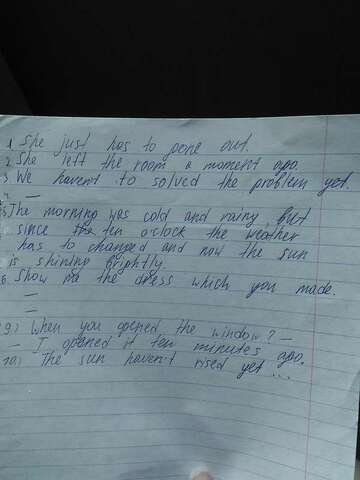 1 She just has to gone out.
2. She left the room a moment ago.
3 We havent to solved the problem yet.
—
5 The morning was cold and rainy, but
since the ten o'clock the weather
has to changed and now the sun
is shining brightly
6. Show me the dress which you made.
—
—
9.) When you opened the window? —
— I opened it ten minutes ago.
10.) The sun haven't rised yet ...